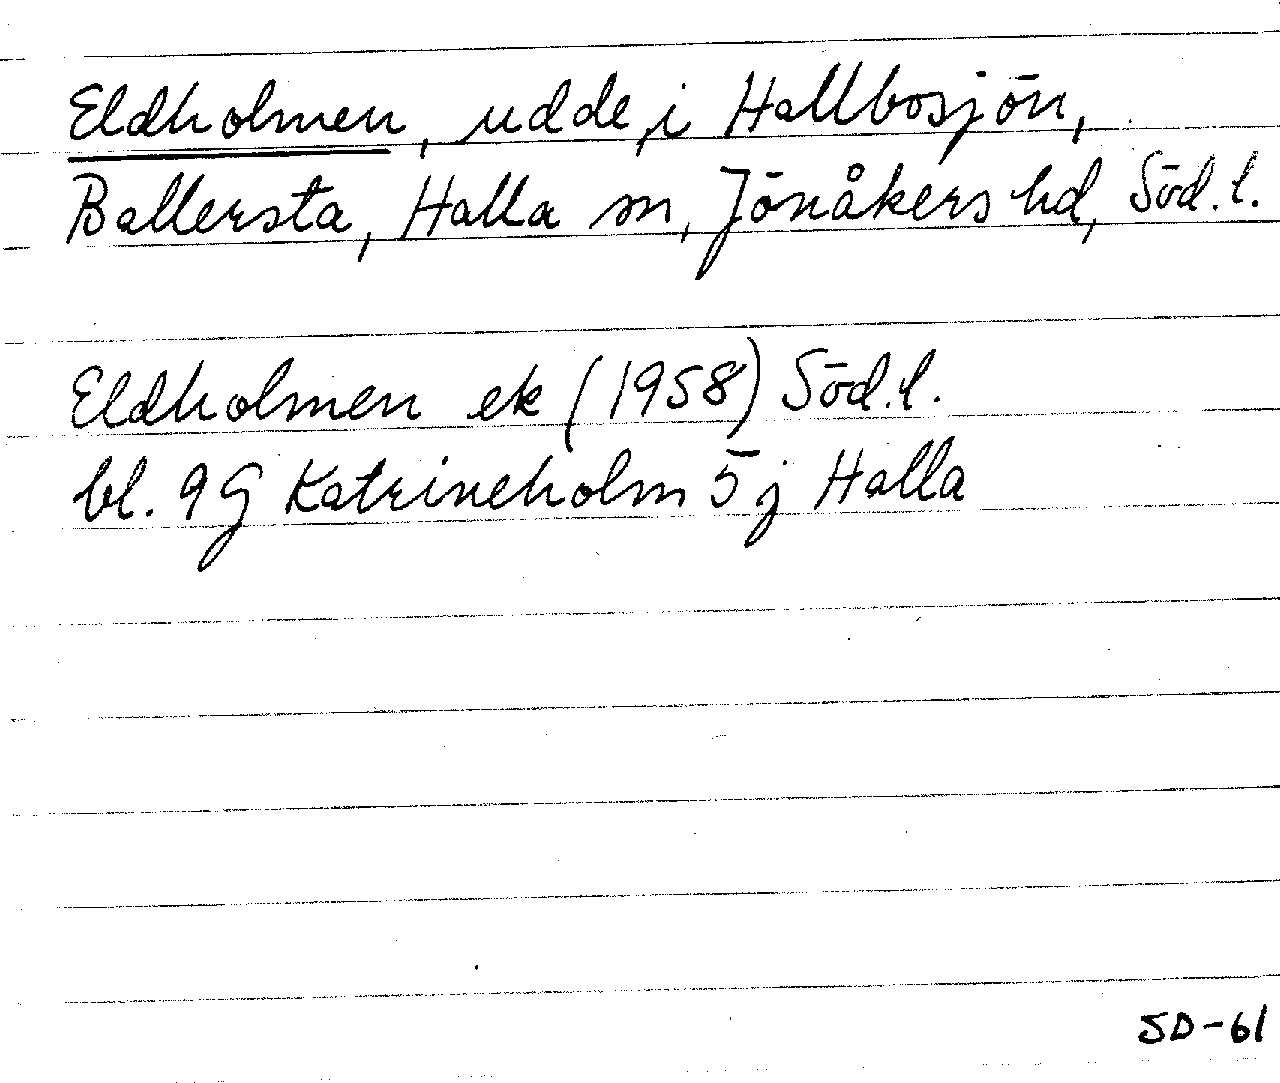 Eldholmen, udde, i Hallbosjön,
Ballersta, Halla sn, Jönåkers hd, Söd.l.
Eldholmen ek (1958) Söd.l.
bl. 9G Katrineholm 5j Halla
SD-61